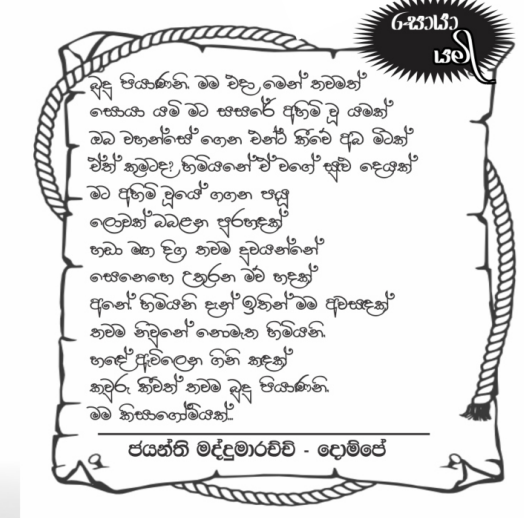 සොයා
යමි
බුදු පියාණනි. මම එදා මෙන් තවමත්
සොයා යමි මට සසරේ අහිමි වූ යමක්
ඔබ වහන්සේ ගෙන එන්ට කීවේ අබ මිටක්
ඒත් කුමටද? හිමියනේ ඒ වගේ සුව දෙයක්
මට අහිමි වූයේ ගගන පායූ
ලොවක් බබළන පුරහඳක්
හඬා මහ දිග තවම දුවයන්නේ
සෙනෙහෙ උතුරන මව් හදක්
අනේ. හිමියනි දැන් ඉතින් මම අවසඳක්
තවම නිවුනේ නොමැත හිමියනි.
හදේ ඇවිලෙන ගිනි කඳක්
කවුරු කීවත් තවම බුදු පියාණනි.
මම කිසාගෝමියක්..
ජයන්ති මද්දුමාරච්චි - දොම්පේ